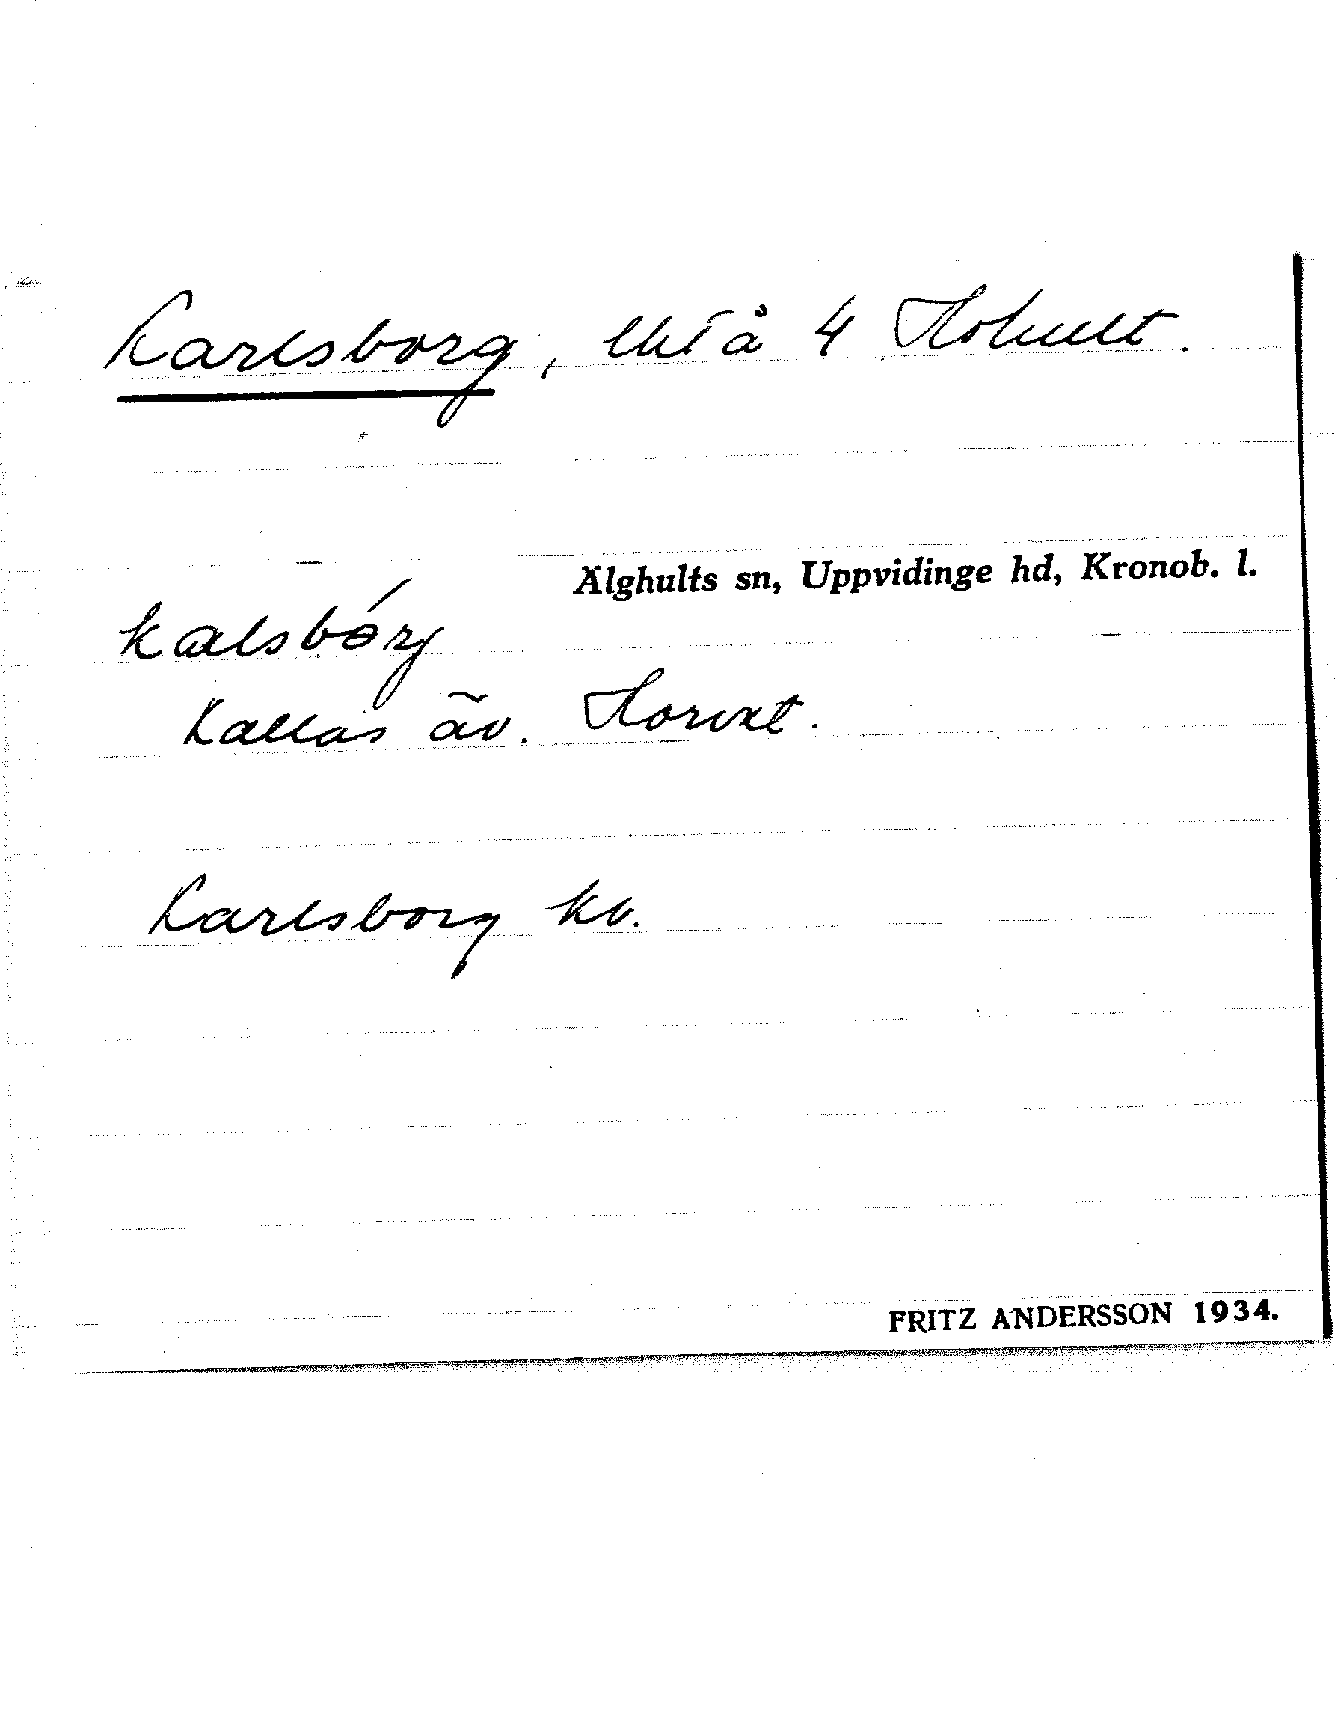 Karlsborg, lht å 4 Hohult.
Älghults sn, Uppvidinge hd, Kronob. l.
kalsbórj
Kallas äv. Horvet.
Karlsborg kv.
FRITZ ANDERSSON 1934.